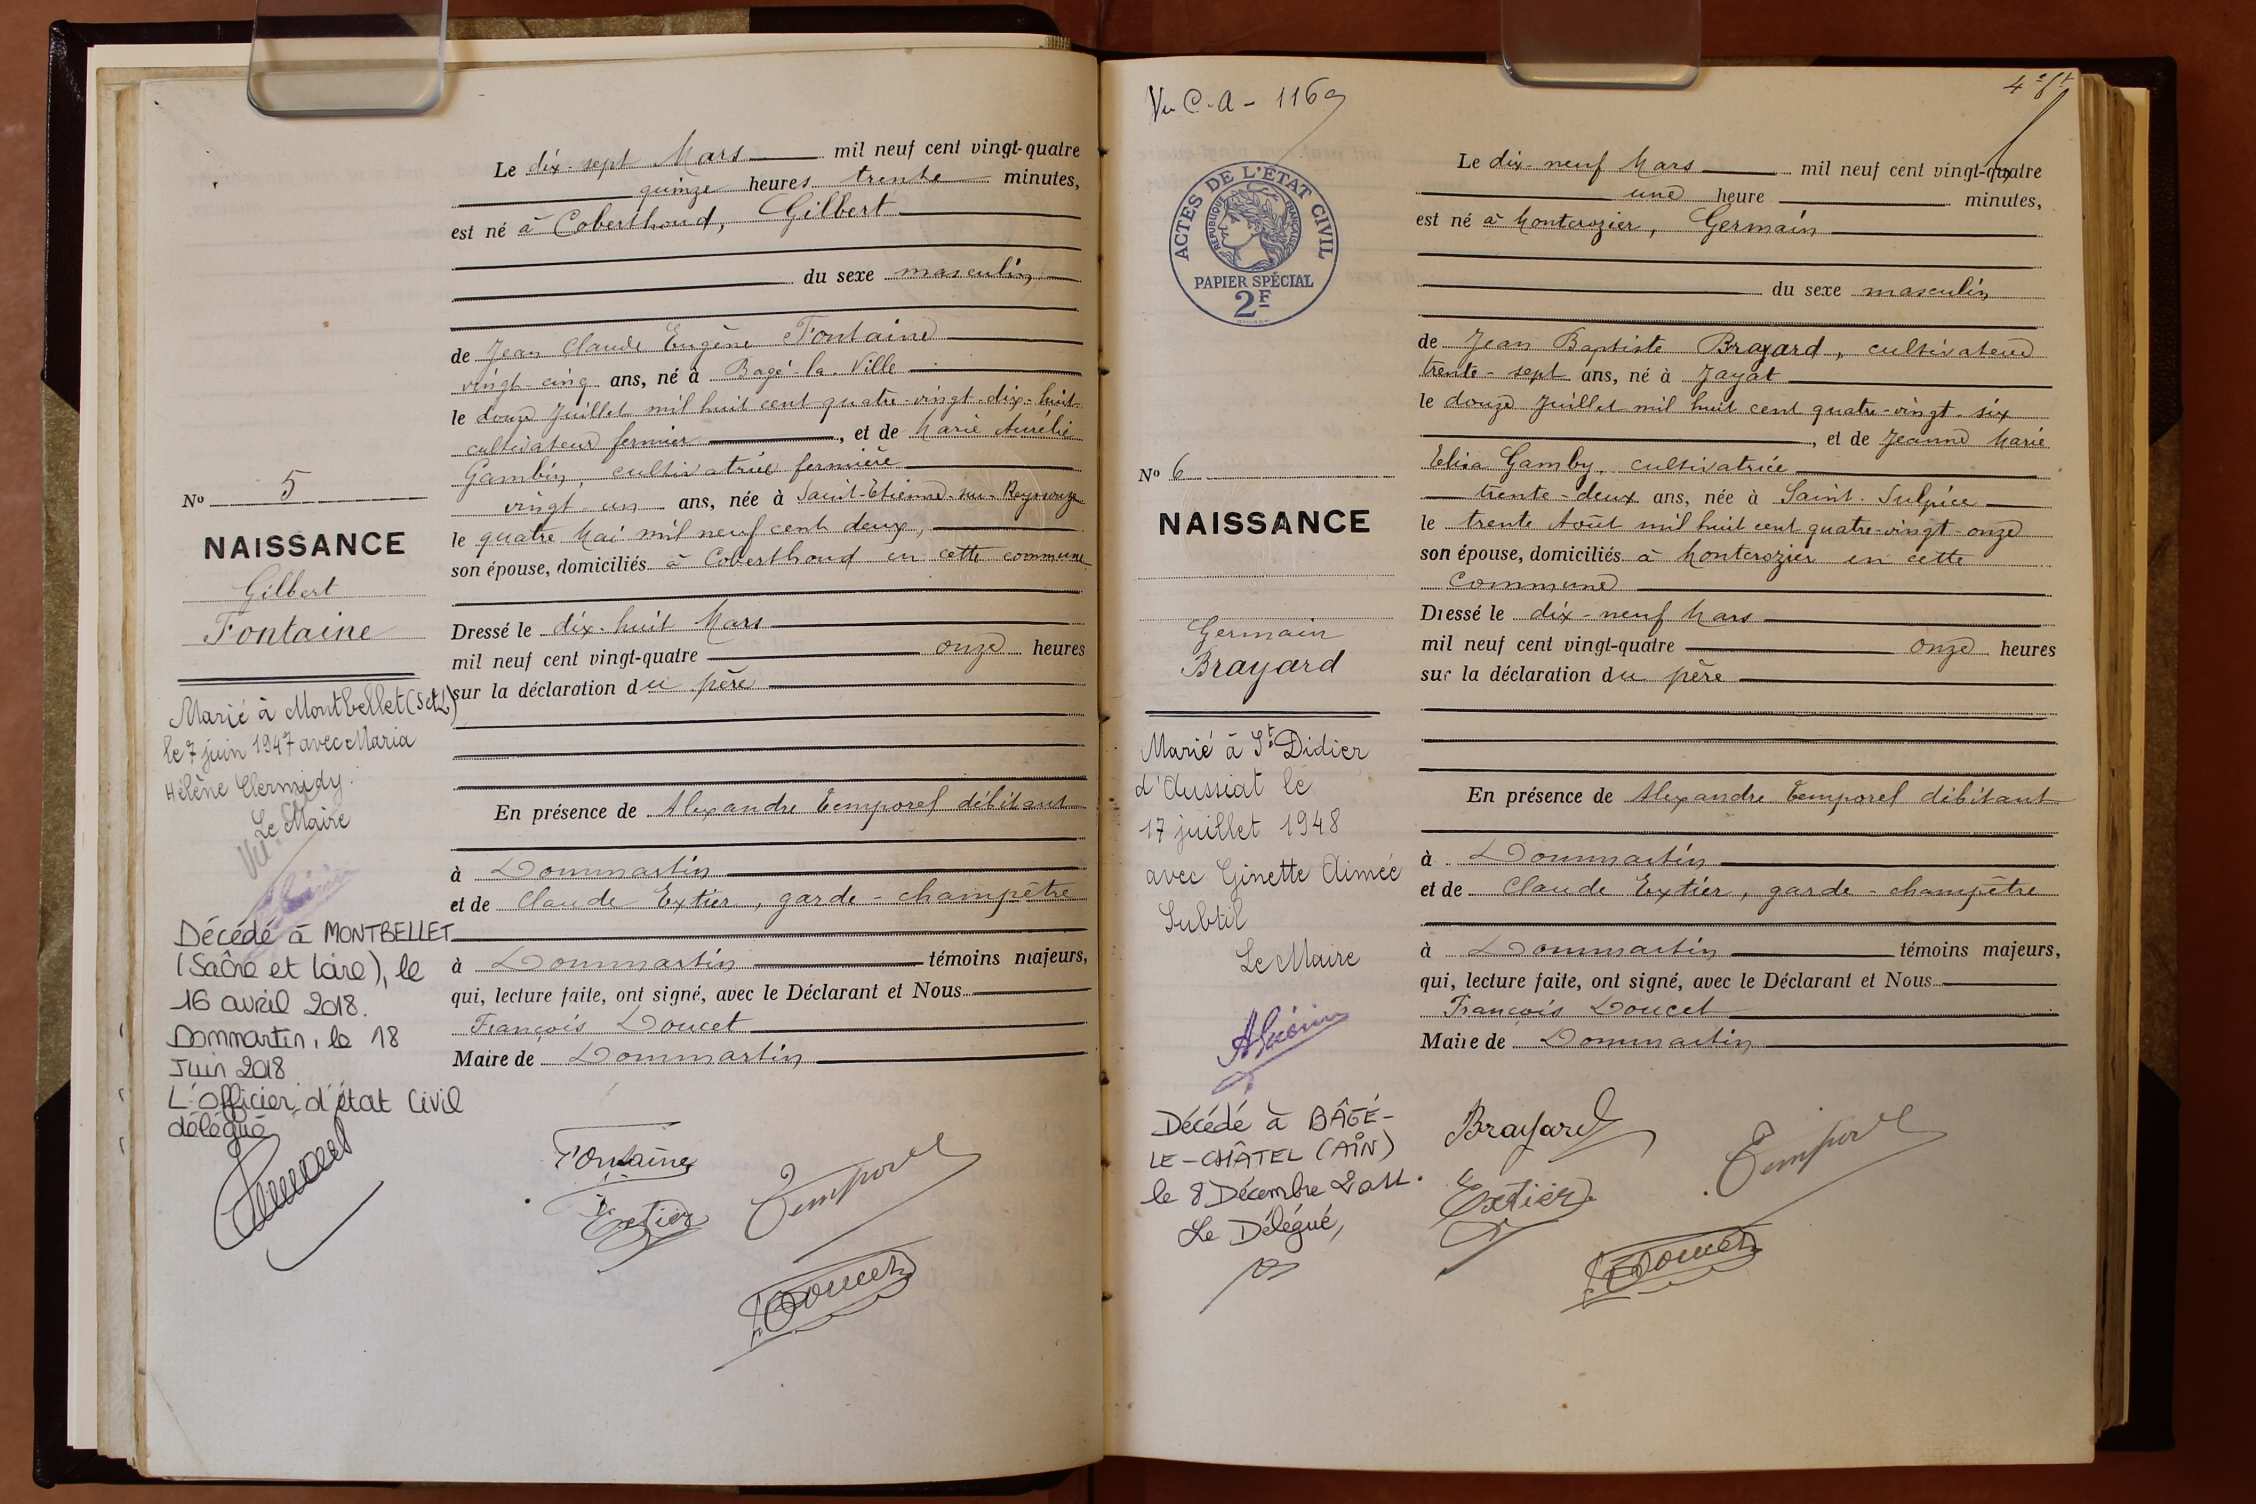 Le dix-sept Mars mil neuf cent vingt-quatre
quinze heures trente minutes,
est né à Coberthoud, Gilbert
du sexe masculin
de Jean Claude Eugène Fontaine
vingt-cinq ans, né à Bagé-la-Ville
le douze Juillet mil huit cent quatre-vingt-dix-huit
cultivateur fermier, et de Marie Aurélie
Gambin, cultivatrice fermière
vingt-un ans, née à Saint-Etienne-sur-Reyssouze
le quatre Mai mil neuf cent deux,
son épouse, domiciliés à Coberthoud en cette commune
Dressé le dix-huit Mars
mil neuf cent vingt-quatre onze heures
sur la déclaration du père
En présence de Alexandre Temporel débitant
à Dommartin
et de Claude Extier, garde-champêtre
à Dommartin témoins majeurs,
qui, lecture faite, ont signé, avec le Déclarant et Nous
François Doucet
Maire de Dommartin
Fontaine
Extier
Temporel
Doucet
No 5
NAISSANCE
Gilbert
Fontaine
Marié à Montbellet (S et L)
le 7 juin 1947 avec Maria
Hélène Clermidy.
Le Maire
Vu
Décédé à MONTBELLET
(Saône et Loire), le
16 avril 2018.
Dommartin, le 18
Juin 2018
L'officier d'état Civil
délégué
Vu C.A - 116
4e ft
ACTES DE L'ETAT CIVIL
REPUBLIQUE FRANÇAISE
PAPIER SPÉCIAL
2F
Le dix-neuf Mars mil neuf cent vingt-quatre
une heure minutes,
est né à Montcrozier, Germain
du sexe masculin
de Jean Baptiste Brayard, cultivateur
trente-sept ans, né à Jayat
le douze Juillet mil huit cent quatre-vingt-six
, et de Jeanne Marie
Elisa Gamby, cultivatrice
trente-deux ans, née à Saint-Sulpice
le trente Août mil huit cent quatre-vingt-onze
son épouse, domiciliés à Montcrozier en cette
commune
Dressé le dix-neuf Mars
mil neuf cent vingt-quatre onze heures
sur la déclaration du père
En présence de Alexandre Temporel débitant
à Dommartin
et de Claude Extier, garde-champêtre
à Dommartin témoins majeurs,
qui, lecture faite, ont signé, avec le Déclarant et Nous
François Doucet
Maire de Dommartin
Brayard
Temporel
Extier
Doucet
No 6
NAISSANCE
Germain
Brayard
Marié à St Didier
d'Aussiat le
17 juillet 1948
avec Ginette Aimée
Subtil
Le Maire
Décédé à BÂGÉ-
LE-CHÂTEL (AIN)
le 8 Décembre
Le Délégué,